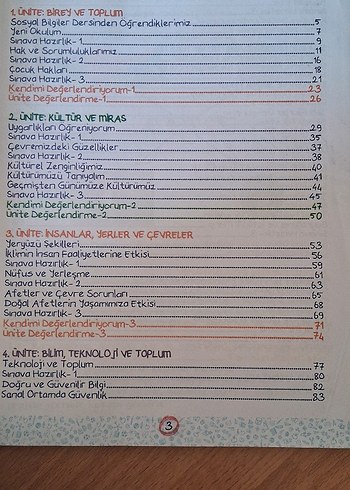 1. ÜNİTE: BİREY VE TOPLUM
Sosyal Bilgiler Dersinden Öğrendiklerimiz 5
Yeni Okulum 7
Sınava Hazırlık- 1 9
Hak ve Sorumluluklarımız 11
Sınava Hazırlık- 2 16
Çocuk Hakları 18
Sınava Hazırlık- 3 21
Kendimi Değerlendiriyorum-1 23
Ünite Değerlendirme-1 26
2. ÜNİTE: KÜLTÜR VE MİRAS
Uygarlıkları Öğreniyorum 29
Sınava Hazırlık- 1 35
Çevremizdeki Güzellikler 37
Sınava Hazırlık- 2 38
Kültürel Zenginliğimiz 40
Kültürümüzü Tanıyalım 41
Geçmişten Günümüze Kültürümüz 44
Sınava Hazırlık- 3 45
Kendimi Değerlendiriyorum-2 47
Ünite Değerlendirme-2 50
3. ÜNİTE: İNSANLAR, YERLER VE ÇEVRELER
Yeryüzü Şekilleri 53
İklimin İnsan Faaliyetlerine Etkisi 56
Sınava Hazırlık- 1 59
Nüfus ve Yerleşme 61
Sınava Hazırlık- 2 63
Afetler ve Çevre Sorunları 65
Doğal Afetlerin Yaşamımıza Etkisi 68
Sınava Hazırlık- 3 69
Kendimi Değerlendiriyorum-3 71
Ünite Değerlendirme-3 74
4. ÜNİTE: BİLİM, TEKNOLOJİ VE TOPLUM
Teknoloji ve Toplum 77
Sınava Hazırlık- 1 80
Doğru ve Güvenilir Bilgi 82
Sanal Ortamda Güvenlik 83
3